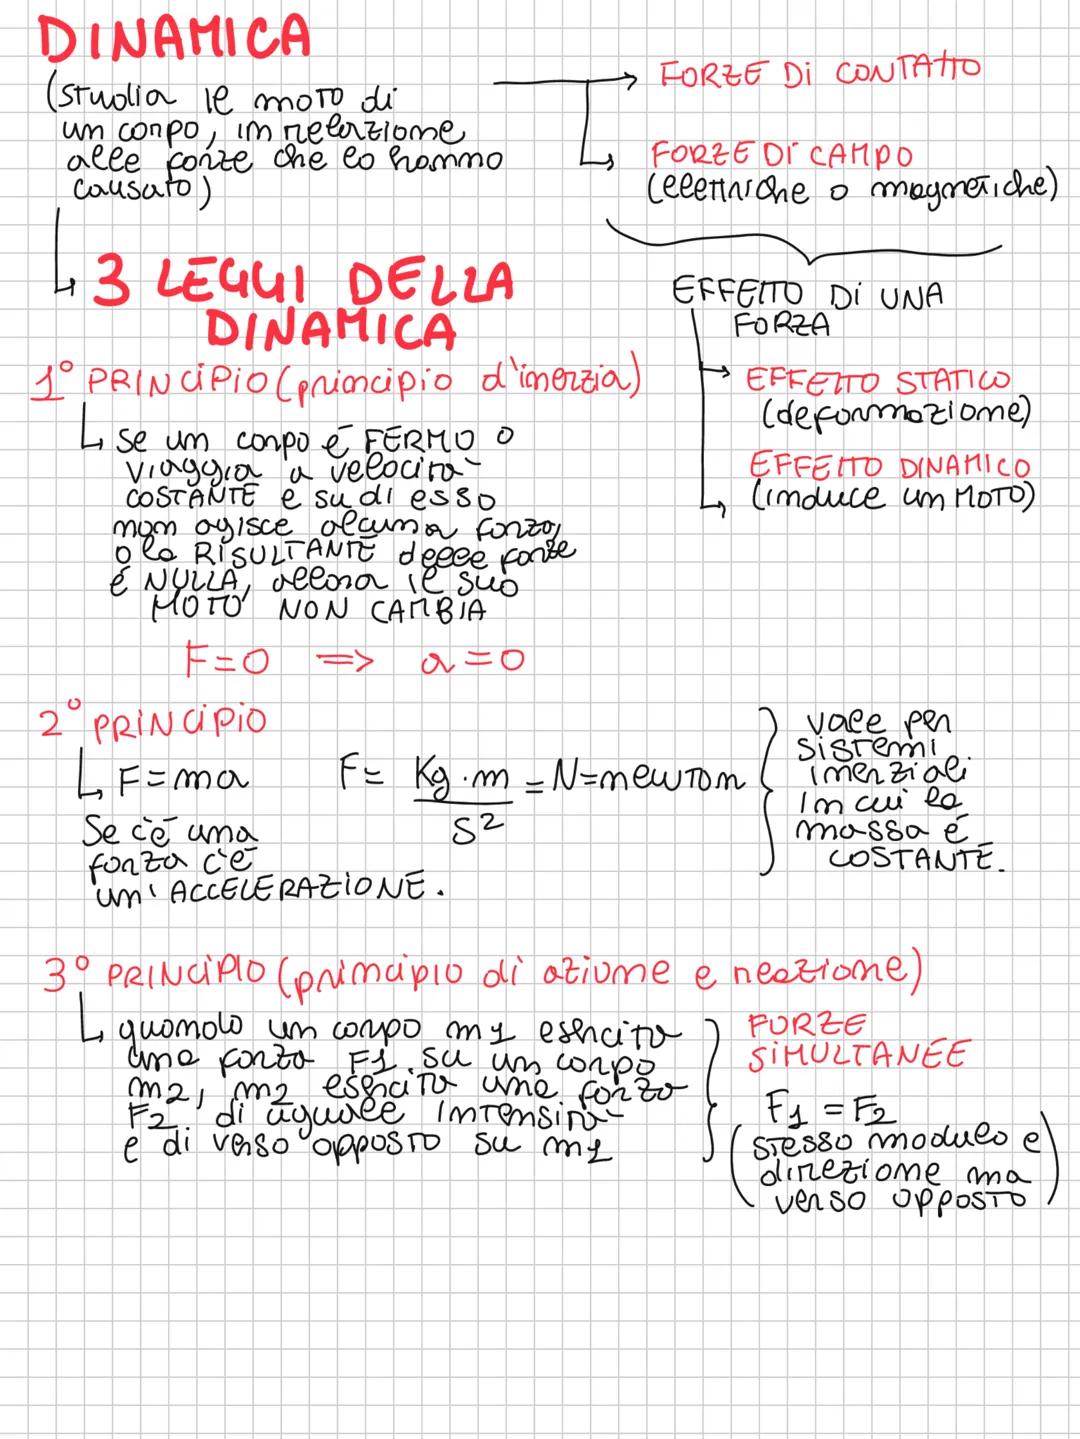 DINAMICA
(studia il moto di
un corpo, in relazione
alle forze che lo hanno
causato)
FORZE Di CONTATTO
FORZE Di CAMPO
(elettriche o magnetiche)
EFFETTO Di UNA
FORZA
EFFETTO STATICO
(deformazione)
EFFETTO DINAMICO
(induce un MOTO)
3 LEGGI DELLA
DINAMICA
1° PRINCIPIO (principio d'inerzia)
Se un corpo è FERMO o
viaggia a velocità
COSTANTE e su di esso
non agisce alcuna forza,
o la RISULTANTE delle forze
è NULLA, allora il suo
MOTO NON CAMBIA
F=0 => a=0
2° PRINCIPIO
F=ma
Se c'è una
forza c'è
un'ACCELERAZIONE.
F= Kg·m/s² = N=newton
vale per
sistemi
inerziali
in cui la
massa è
COSTANTE.
3° PRINCIPIO (principio di azione e reazione)
quando un corpo m1 esercita
una forza F1 su un corpo
m2, m2 esercita una forza
F2 di uguale intensità
e di verso opposto su m1
FORZE
SIMULTANEE
F1 = F2
(stesso modulo e
direzione ma
verso opposto)